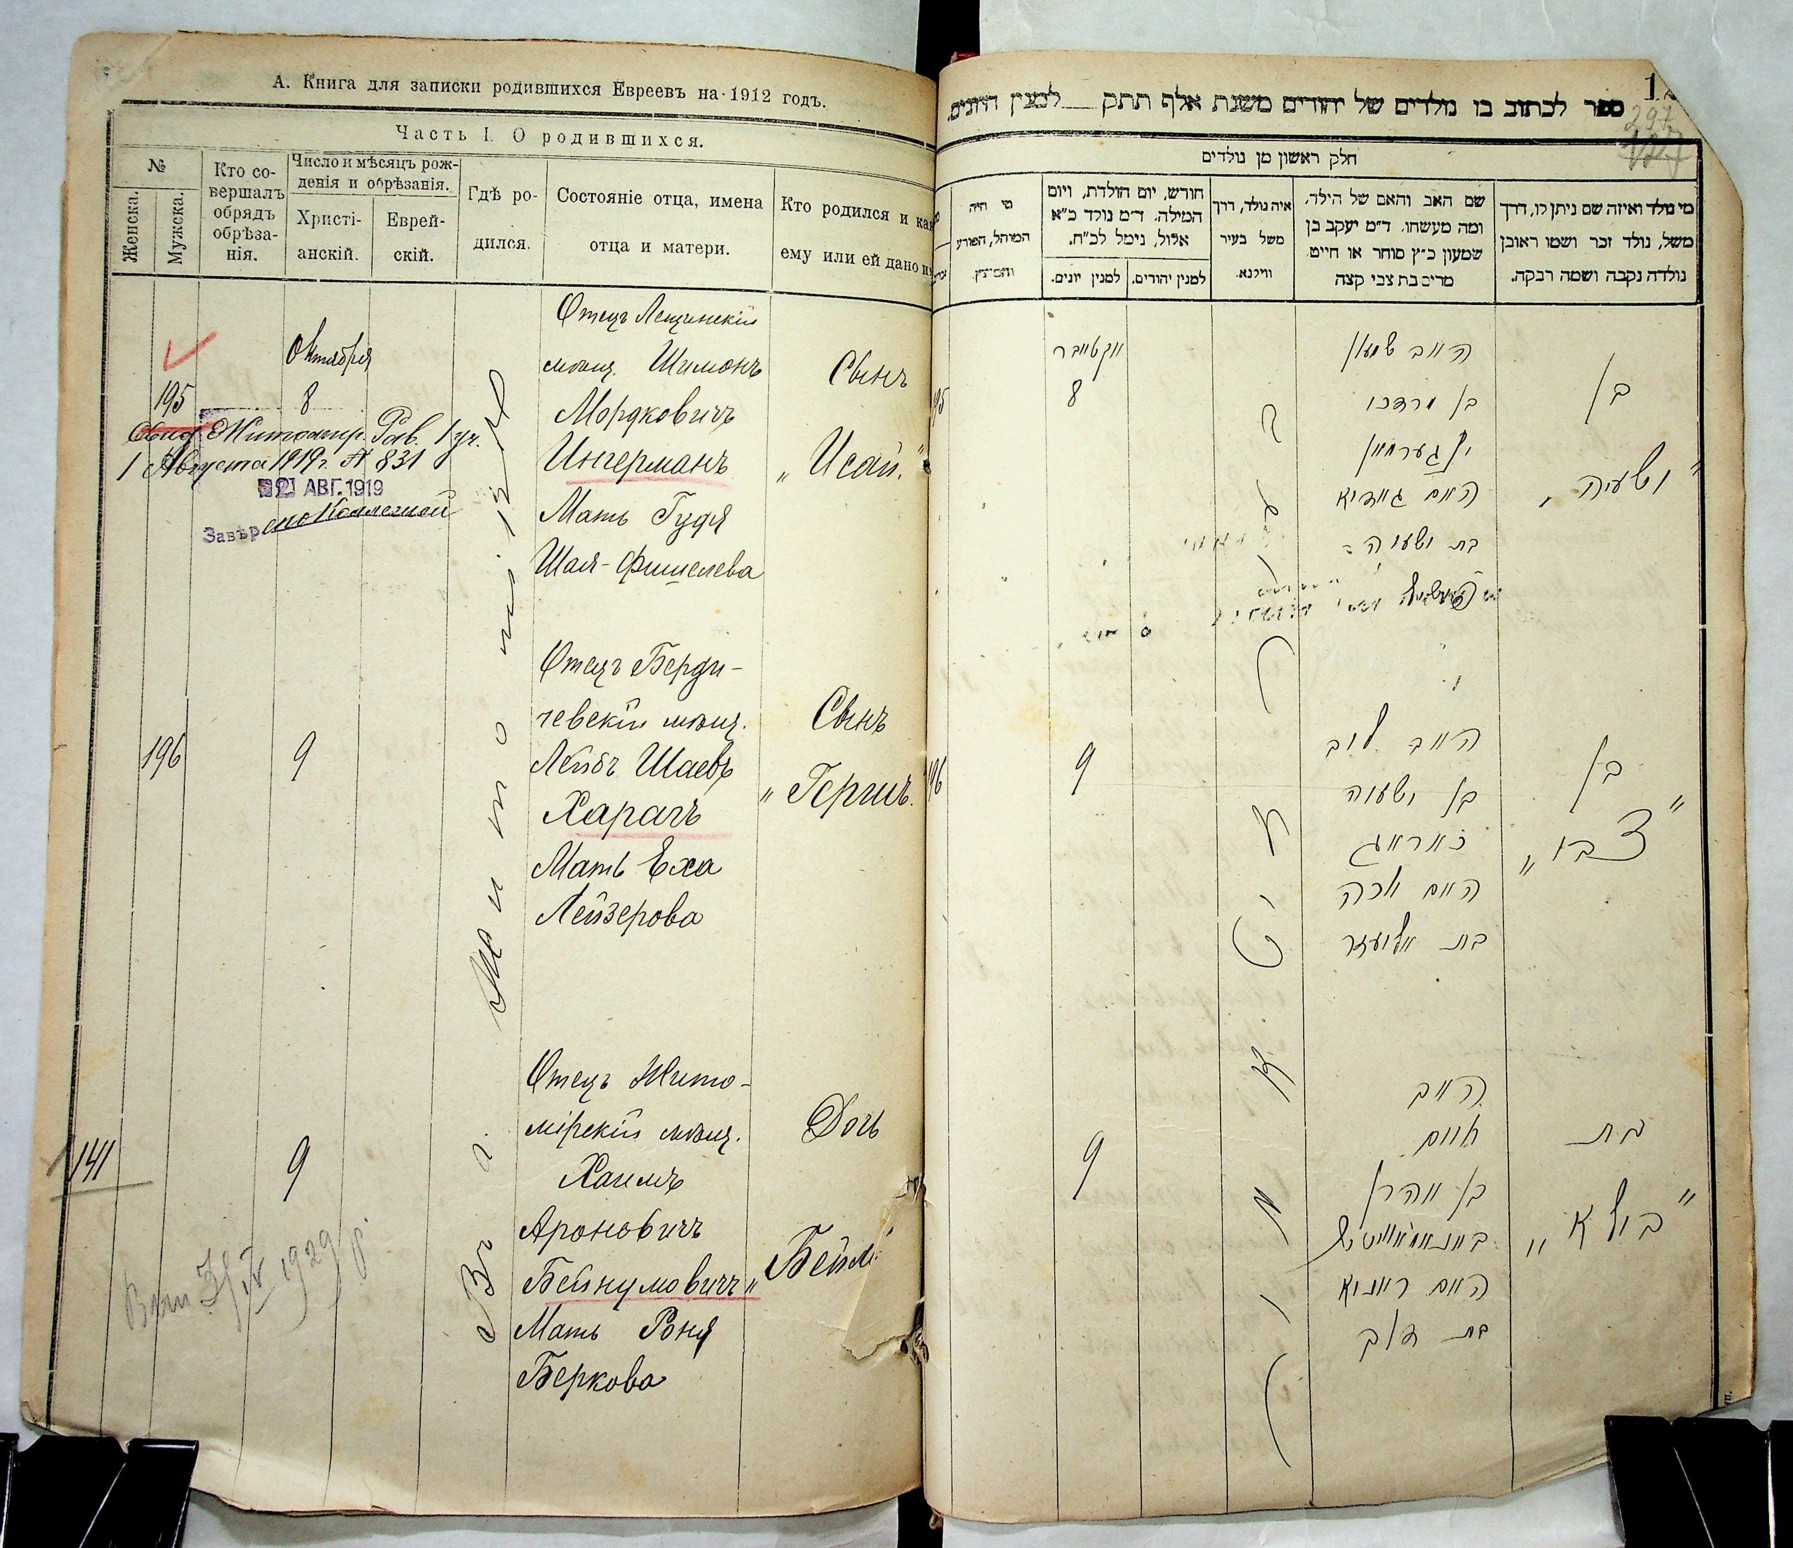 А. Книга для записки родившихся Евреевъ на 1912 годъ.
Часть I. О родившихся.
№
Женска.
Мужска.
Кто со-
вершалъ
обрядъ
обрѣза-
нія.
Число и мѣсяцъ рож-
денія и обрѣзанія.
Христі-
анскій.
Еврей-
скій.
Гдѣ ро-
дился.
Состояніе отца, имена
отца и матери.
Кто родился и ка
ему или ей дано и
195
Октября
8
Свид. Житомир. Рав. 1 уч.
1 Августа 1919 г. № 831
АВГ. 1919
Завѣр
Отецъ Лещинскій
мѣщ. Шимонъ
Мордковичъ
Ингерманъ
Мать Гудя
Шая-Фишелева
Сынъ
„Исай."
196
9
Отецъ Берди-
чевскій мѣщ.
Лейбъ Шаевъ
Харачъ
Мать Еха
Лейзерова
Сынъ
„Гершъ.
141
9
Отецъ Жито-
мірскій мѣщ.
Хаимъ
Ароновичъ
Бейнумовичъ
Мать Роня
Беркова
Дочь
„Бейл
Въ г. Житомірѣ
1929 г.
ספר לכתוב בו נולדים של יהודים משנת אלף תתק למנין היונים.
297
חלק ראשון מן נולדים
מי נולד ואיזה שם ניתן לו, דרך
משל, נולד זכר ושמו ראובן
נולדה נקבה ושמה רבקה.
שם האב והאם של הילד,
ומה מעשהו, ד״מ יעקב בן
שמעון כ״ץ סוחר או חייט
מרים בת צבי קצה
איה נולד, דרך
משל בעיר
ווילנא.
חודש, יום הולדת, ויום
המילה. ד״מ נולד כ״א
אלול, נימל לכ״ח.
למנין יהודים.
למנין יונים.
מי היה
המוהל, הפורע
והמוצץ.
אקטאבר
8
האב שמעון
בן מרדכי
ינגערמאן
האם גודיא
בת ישעיה
בן
„ישעיה"
196
9
האב ליב
בן ישעיה
כאראג
האם אכה
בת אליעזר
בן
„צבי"
9
האב
חיים
בן אהרן
האם ראניא
בת דוב
בת
„בילא"